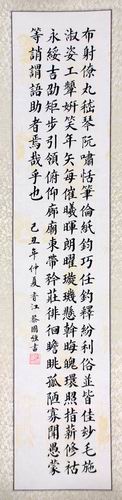 布射僚丸嵇琴阮嘯恬筆倫紙鈞巧任釣釋紛利俗並皆佳妙毛施
淑姿工顰妍笑年矢每催曦暉朗曜璇璣懸斡晦魄環照指薪修祜
永綏吉劭矩步引領俯仰廊廟束帶矜莊徘徊瞻眺孤陋寡聞愚蒙
等誚謂語助者焉哉乎也
己丑年仲夏香江蔡國雄書